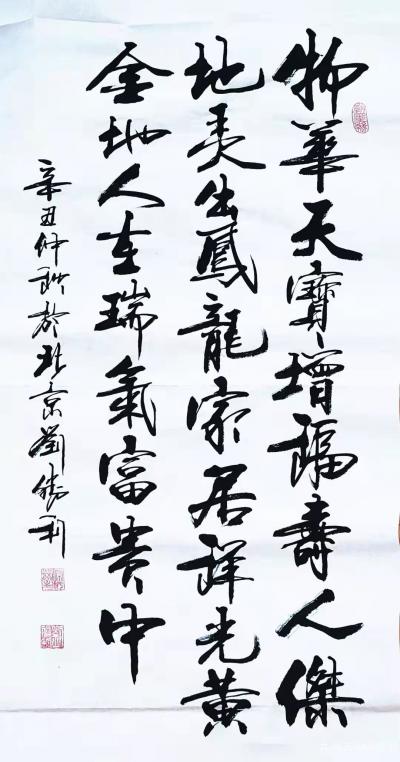 物華天寶增福壽人傑
地灵生鳳龍家居祥光黄
金地人在瑞氣富贵中
辛丑仲秋於北京劉勝利